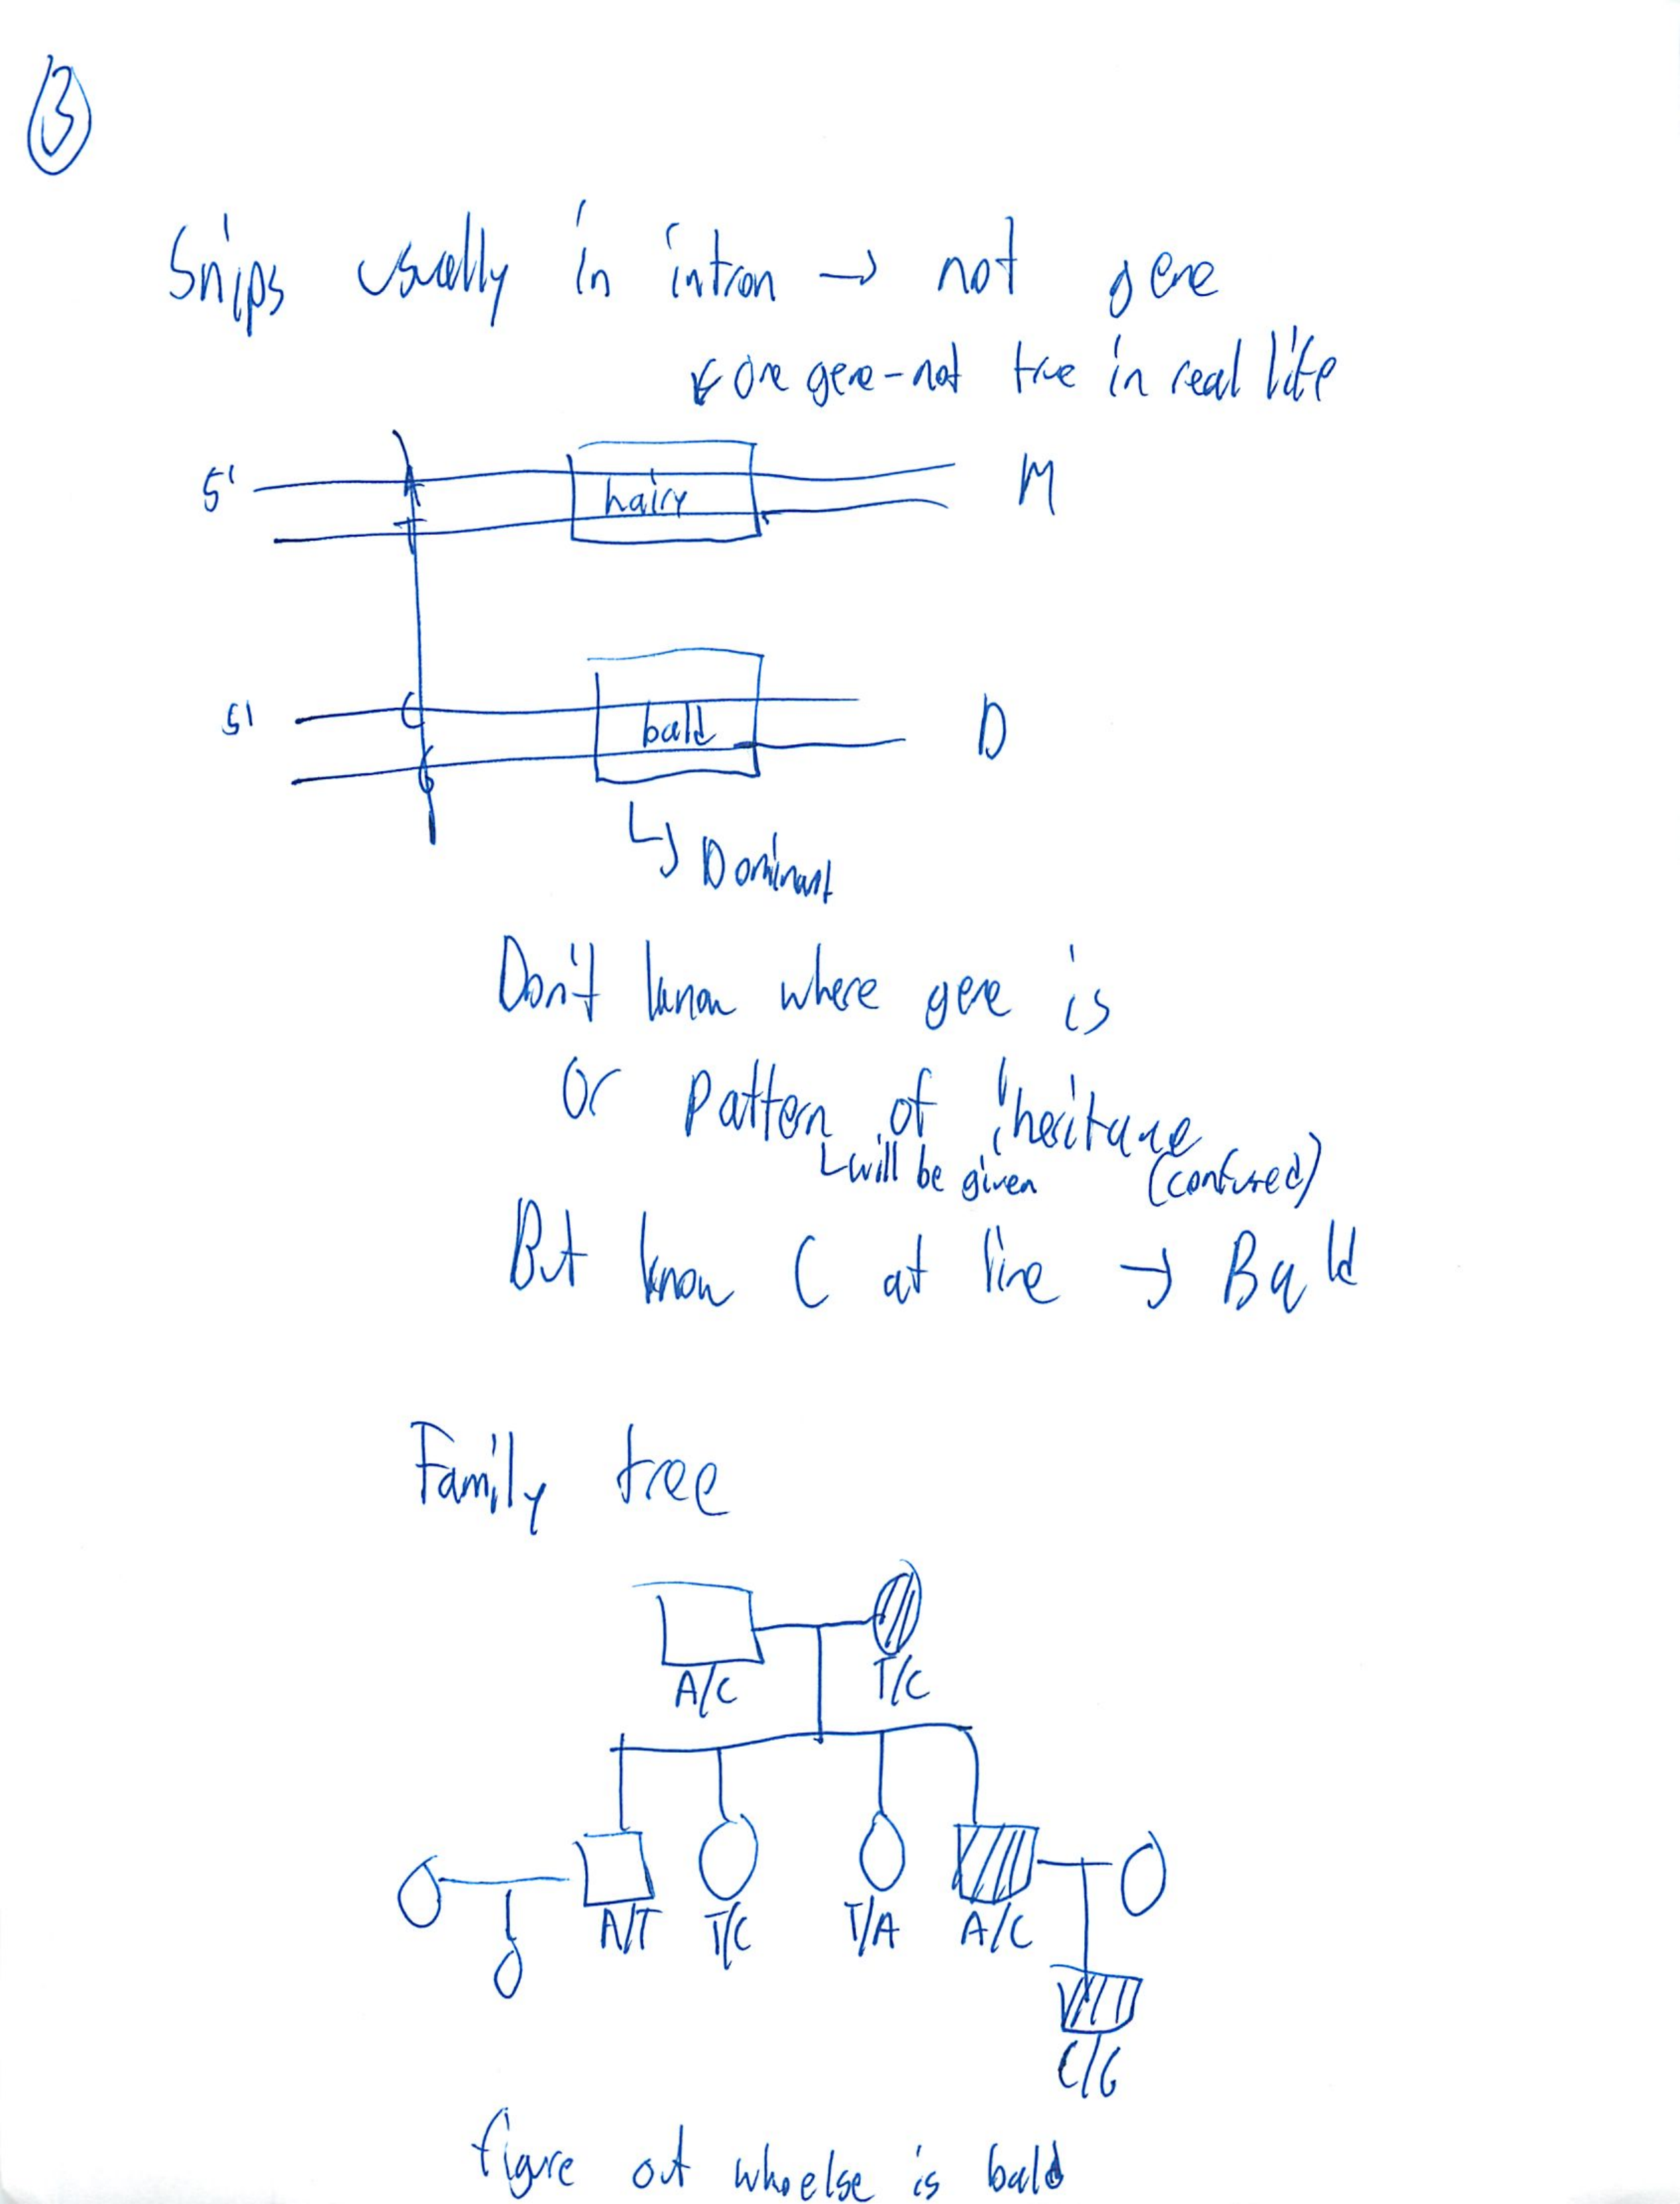 ③
Snips usually in intron → not gene
↙ one gene - not true in real life
5' A hairy M
T
5' C bald D
G
↳ Dominant
Don't know where gene is
or pattern of inheritance
↳ will be given (confused)
But know C at line → Bald
Family tree
A/C T/C
A/T T/C T/A A/C
C/G
figure out who else is bald